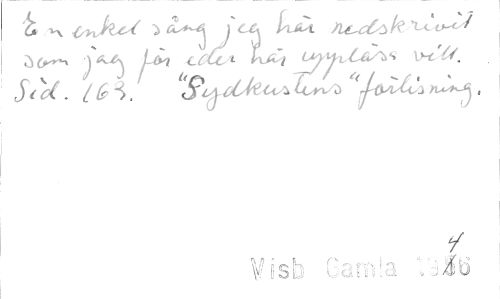 En enkel sång jag här nedskrivit
som jag för eder här uppläsa vill.
Sid. 163. "Sydkustens" förlisning.
Visb Gamla 1946